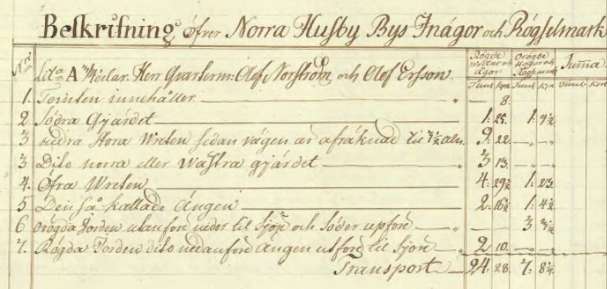 Beskrifning öfver Norra Husby Bys Inägor och Rögselmark
Lda A Herr Qvarterm: Olof Norström och Olof Ersson Tunl. Kpa Tunl. Kpa Tunl. Kut Suma
1. Tomten innehåller — 8.
2 Södra Gyärdet 1. 25. 1. 9½
3 nedra Stora Wreten sedan vägen är afräknad til 7½ aln. 9. 22.
3 Dito norra eller Wästra gyärdet 3 13.
4. Öfra Wreten 4. 29½ 1. 23½
5 Den så kallade Ängen 2. 16½ 1. 4½
6 orögda Jorden utanföre neder til Sjön och Söder upföre 3 3½
7. Rögda Jorden dito nedanföre Ängen utföre til Sjön 2 10.
Transport 24. 28 7. 8½